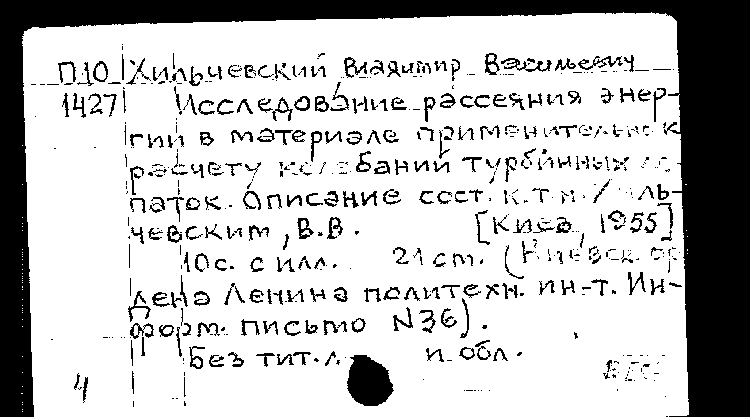 П10 Хильчевский Владимир Васильевич
1427 Исследование рассеяния энер-
гии в материале применительно к
расчету колебаний турбинных ло-
паток. Описание сост. к.т.н. Хиль-
чевским, В.В. [Киев, 1955]
10с. с илл. 21 cm. (Киевск. ор
дена Ленина политехн. ин-т. Ин-
форм. письмо N36).
Без тит. л. и обл.
4